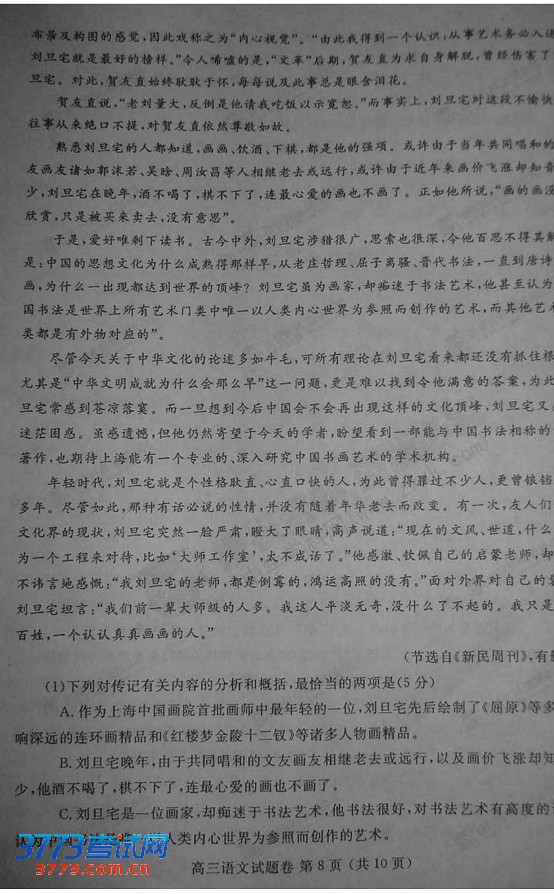 布景及构图的感觉，因此戏称之为“内心视觉”。“由此我得到一个认识，从事艺术务必入迷
刘旦宅就是最好的榜样。”令人唏嘘的是，“文革”后期，贺友直为求自身解脱，曾经伤害了
旦宅。对此，贺友直始终耿耿于怀，每每说及此事总是眼含泪花。
贺友直说，“老刘量大，反倒是他请我吃饭以示宽恕。”而事实上，刘旦宅对这段不愉快
往事从来绝口不提，对贺友直依然尊敬如故。
熟悉刘旦宅的人都知道，画画、饮酒、下棋，都是他的强项。或许由于当年共同唱和的
友画友诸如郭沫若、吴晗、周汝昌等人相继老去或远行，或许由于近年来画价飞涨却知音
少，刘旦宅在晚年，酒不喝了，棋不下了，连最心爱的画也不画了。正如他所说，“画的画没
欣赏，只是被买来卖去，没有意思”。
于是，爱好唯剩下读书。古今中外，刘旦宅涉猎很广，思索也很深，令他百思不得其解
是：中国的思想文化为什么成熟得那样早，从老庄哲理、屈子离骚、晋代书法，一直到唐诗
画，为什么一出现都达到世界的顶峰？刘旦宅虽为画家，却痴迷于书法艺术，他甚至认为
国书法是世界上所有艺术门类中唯一以人类内心世界为参照而创作的艺术，而其他艺术
类都是有外物对应的”。
尽管今天关于中华文化的论述多如牛毛，可所有理论在刘旦宅看来都还没有抓住根
尤其是“中华文明成就为什么会那么早”这一问题，更是难以找到令他满意的答案，为此
旦宅常感到苍凉落寞。而一旦想到今后中国会不会再出现这样的文化顶峰，刘旦宅又
迷茫困惑。虽感遗憾，但他仍然寄望于今天的学者，盼望看到一部能与中国书法相称的
著作，也期待上海能有一个专业的、深入研究中国书画艺术的学术机构。
年轻时代，刘旦宅就是个性格耿直、心直口快的人，为此曾得罪过不少人，更曾锒铛
多年。尽管如此，那种有话必说的性情，并没有随着年华老去而改变。有一次，友人们
文化界的现状，刘旦宅突然一脸严肃，瞪大了眼睛，高声说道：“现在的文风、世道，什么
为一个工程来对待，比如‘大师工作室’，太不成话了。”他感激、钦佩自己的启蒙老师，却
不讳言地感慨：“我刘旦宅的老师，都是倒霉的，鸿运高照的没有。”面对外界对自己的
刘旦宅坦言：“我们前一辈大师级的人多。我这人平淡无奇，没什么了不起的。我只是
百姓，一个认认真真画画的人。”
（节选自《新民周刊》，有
(1)下列对传记有关内容的分析和概括，最恰当的两项是(5分)
A. 作为上海中国画院首批画师中最年轻的一位，刘旦宅先后绘制了《屈原》等多
响深远的连环画精品和《红楼梦金陵十二钗》等诸多人物画精品。
B. 刘旦宅晚年，由于共同唱和的文友画友相继老去或远行，以及画价飞涨却知
少，他酒不喝了，棋不下了，连最心爱的画也不画了。
C. 刘旦宅是一位画家，却痴迷于书法艺术，他书法很好，对书法艺术有高度的
认为中国书法是唯一以人类内心世界为参照而创作的艺术。
3773考试网
www.3773.com.cn
高三语文试题卷 第8页（共10页）